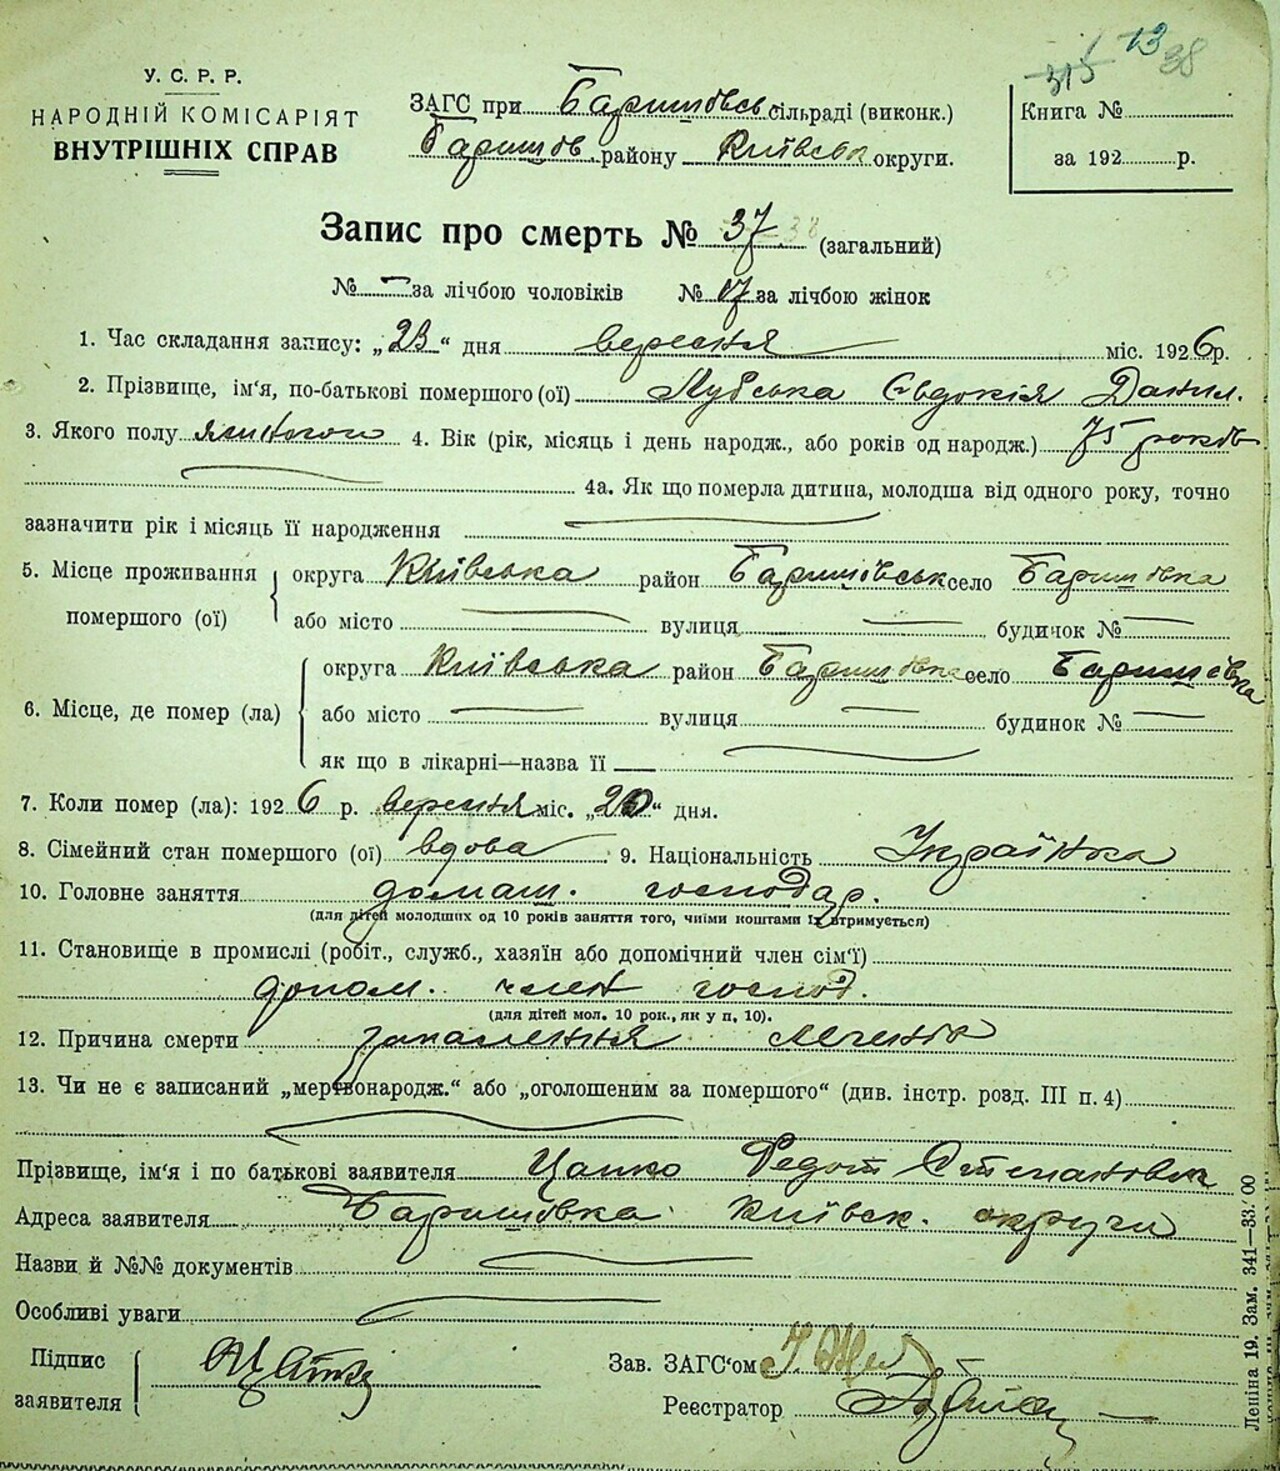 315 13 38
У. С. Р. Р.
НАРОДНІЙ КОМІСАРІЯТ
ВНУТРІШНІХ СПРАВ
ЗАГС при Баришівськ сільраді (виконк.)
Баришів. району Київськ округи.
Книга №
за 192 р.
Запис про смерть № 37 38 (загальний)
№ — за лічбою чоловіків № 17 за лічбою жінок
1. Час складання запису: „23“ дня вересня міс. 1926р.
2. Прізвище, ім‘я, по-батькові помершого (ої) Євдокія Данил.
3. Якого полу жіночого 4. Вік (рік, місяць і день народж., або років од народж.) 75 років
4а. Як що померла дитина, молодша від одного року, точно
зазначити рік і місяць її народження
5. Місце проживання помершого (ої) округа Київська район Баришівськ село Баришівка
або місто — вулиця — будинок № —
6. Місце, де помер (ла) округа Київська район Баришівка село Баришівка
або місто — вулиця — будинок № —
як що в лікарні—назва її
7. Коли помер (ла): 1926 р. вересня міс. „20“ дня.
8. Сімейний стан помершого (ої) вдова 9. Національність Українка
10. Головне заняття домаш. господар.
(для дітей молодших од 10 років заняття того, чиїми коштами їх втримується)
11. Становище в промислі (робіт., служб., хазяїн або допомічний член сім‘ї)
допом. член господ.
(для дітей мол. 10 рок., як у п. 10).
12. Причина смерти запалення легенів
13. Чи не є записаний „мертвонародж.“ або „оголошеним за помершого“ (див. інстр. розд. III п. 4)
Прізвище, ім‘я і по батькові заявителя Цапко Федот Степанович
Адреса заявителя Баришівка Київськ. округи
Назви й №№ документів
Особливі уваги
Підпис заявителя
Зав. ЗАГС‘ом
Реєстратор
Леніна 19. Зам. 341—33.000